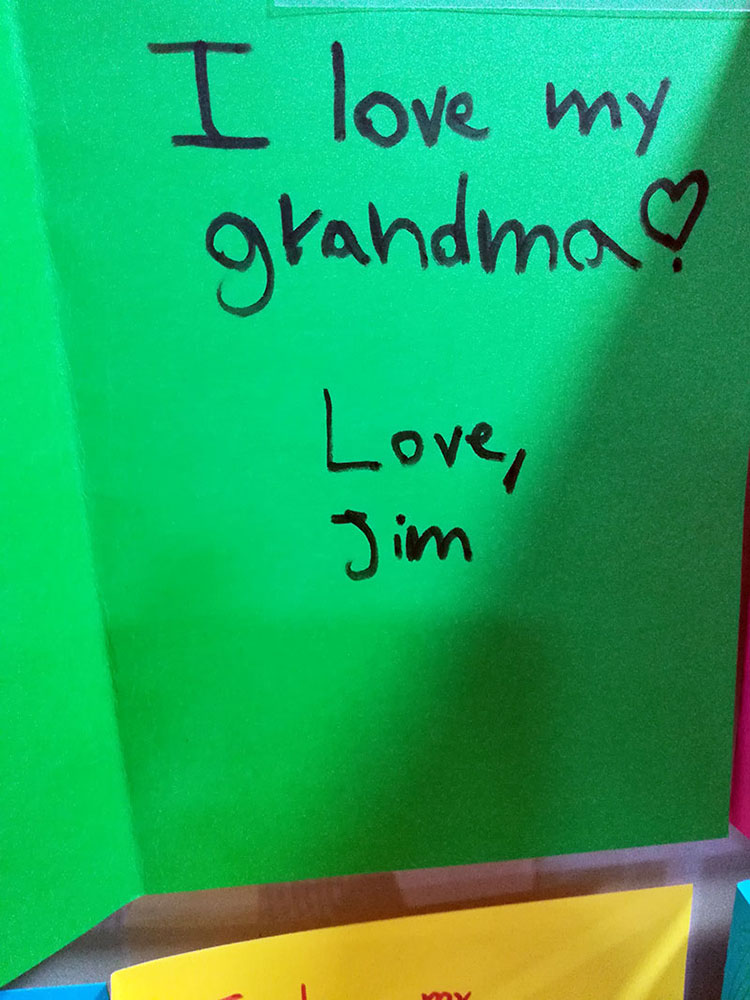 I love my
grandma♡
Love,
Jim
my